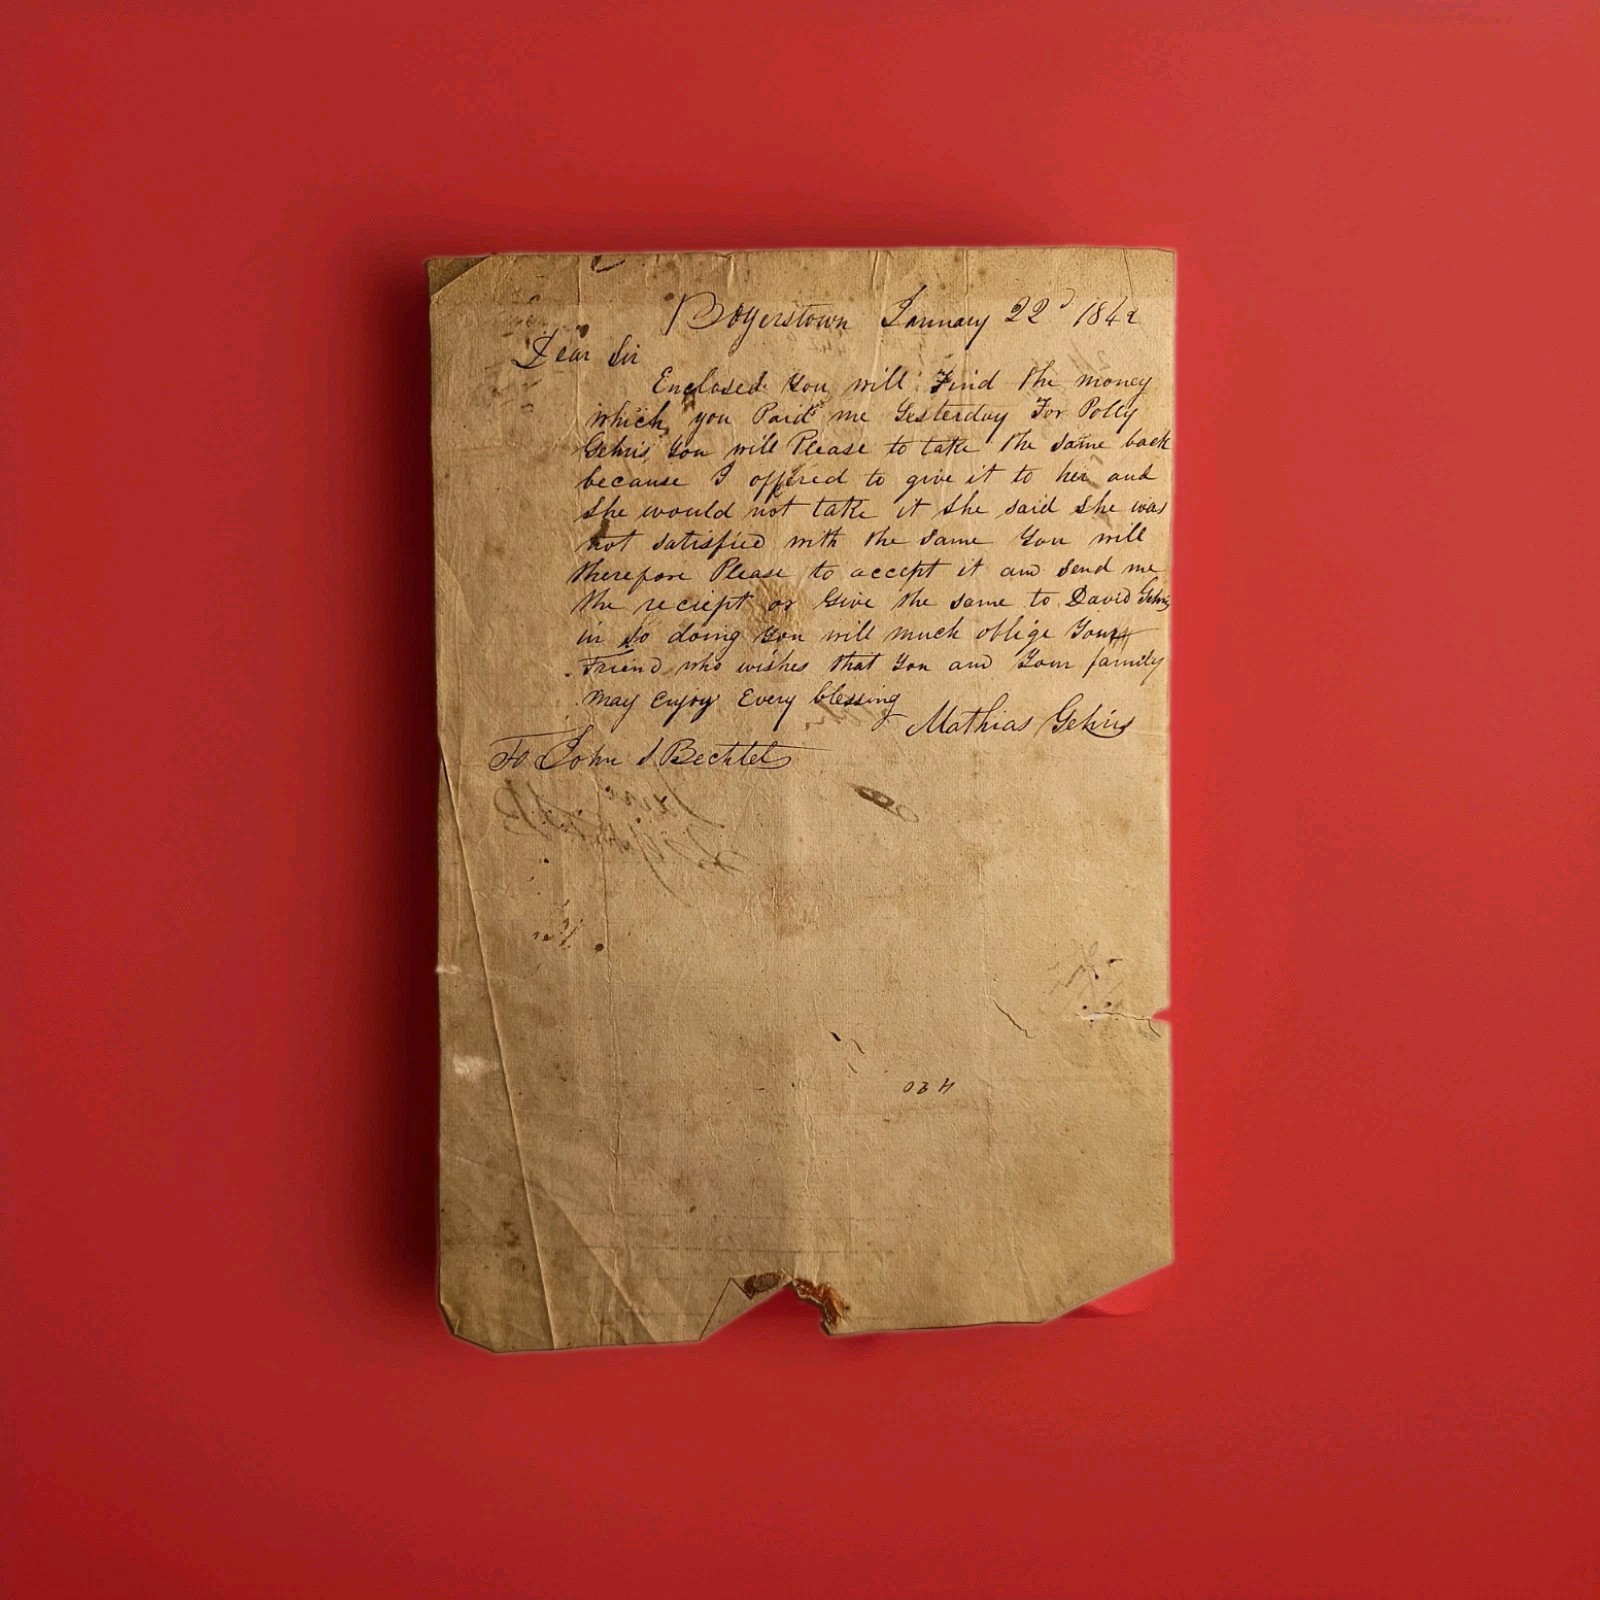 Boyerstown January 22d 1842
Dear Sir
Enclosed You will Find the money
which you Paid me Yesterday For Polly
Gehris You will Please to take the same back
because I offered to give it to her and
She would not take it She said She was
not satisfied with the same You will
therefore Please to accept it and send me
the reciept or Give the same to David Gehris
in so doing you will much oblige Your
Friend who wishes that You and Your family
may enjoy Every blessing
Mathias Gehris
To John S Bechtel